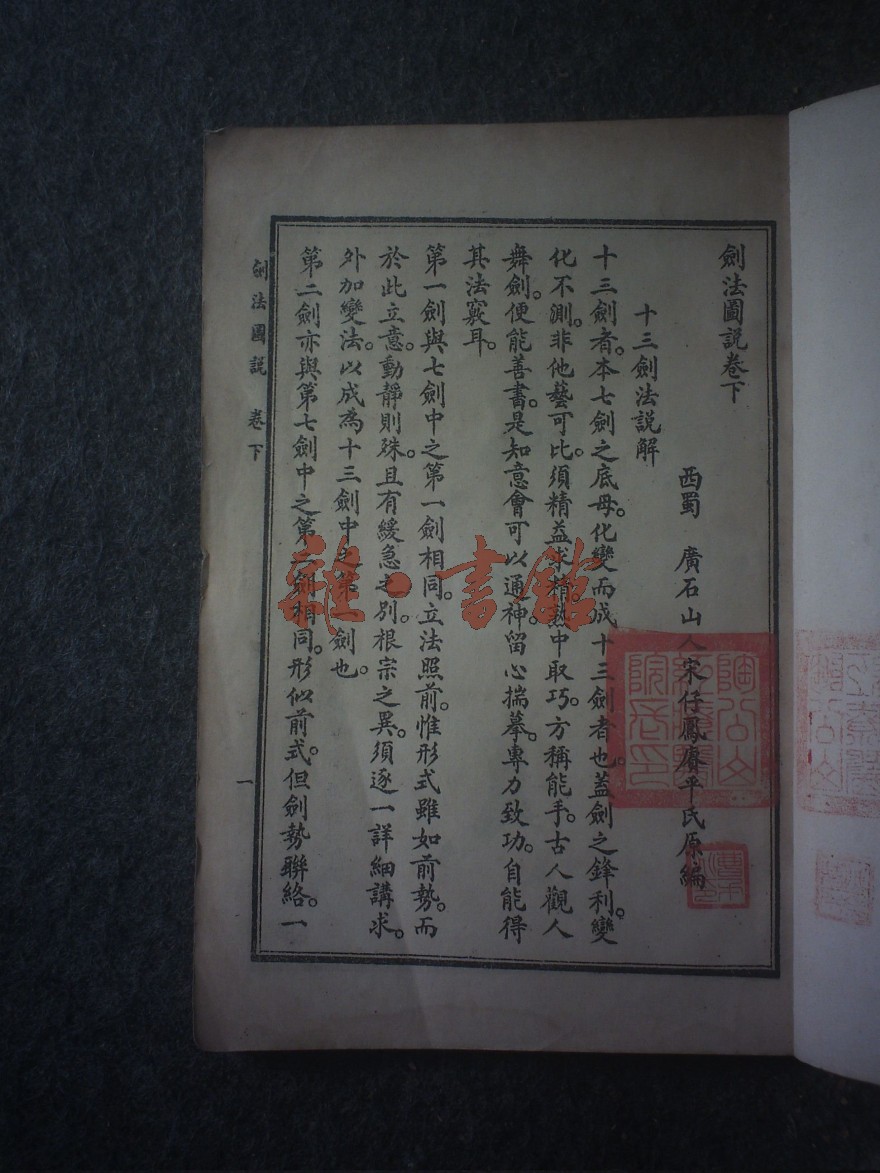 劍法圖說卷下
西蜀 廣石山人宋仔鳳賡平氏原編
十三劍法說解
十三劍者。本七劍之底母。化變而成十三劍者也。蓋劍之鋒利。變
化不測。非他藝可比。須精益求精。熟中取巧。方稱能手。古人觀人
舞劍。便能善書。是知意會可以通神。留心揣摹。專力致功。自能得
其法竅耳。
第一劍與七劍中之第一劍相同。立法照前。惟形式雖如前勢。而
於此立意。動靜則殊。且有緩急之別。根宗之異。須逐一詳細講求。
外加變法。以成為十三劍中之第一劍也。
第二劍亦與第七劍中之第二劍相同。形似前式。但劍勢聯絡。一
劍法圖說 卷下
一
雜·書館